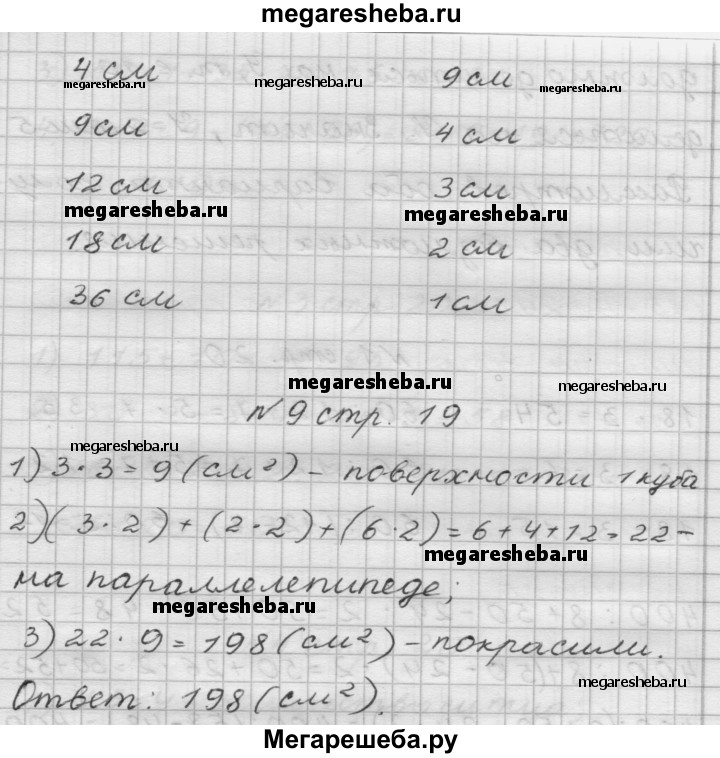 megaresheba.ru
4 см 9 см
megaresheba.ru megaresheba.ru megaresheba.ru
9 см 4 см
12 см 3 см
megaresheba.ru megaresheba.ru
18 см 2 см
36 см 1 см
megaresheba.ru megaresheba.ru
№ 9 стр. 19
megaresheba.ru
1) 3 · 3 = 9 (см²) - поверхности 1 куба
2) (3 · 2) + (2 · 2) + (6 · 2) = 6 + 4 + 12 = 22 -
megaresheba.ru
на параллелепипеде;
megaresheba.ru
3) 22 · 9 = 198 (см²) - покрасили.
megaresheba.ru
Ответ: 198 (см²).
Мегарешеба.ру